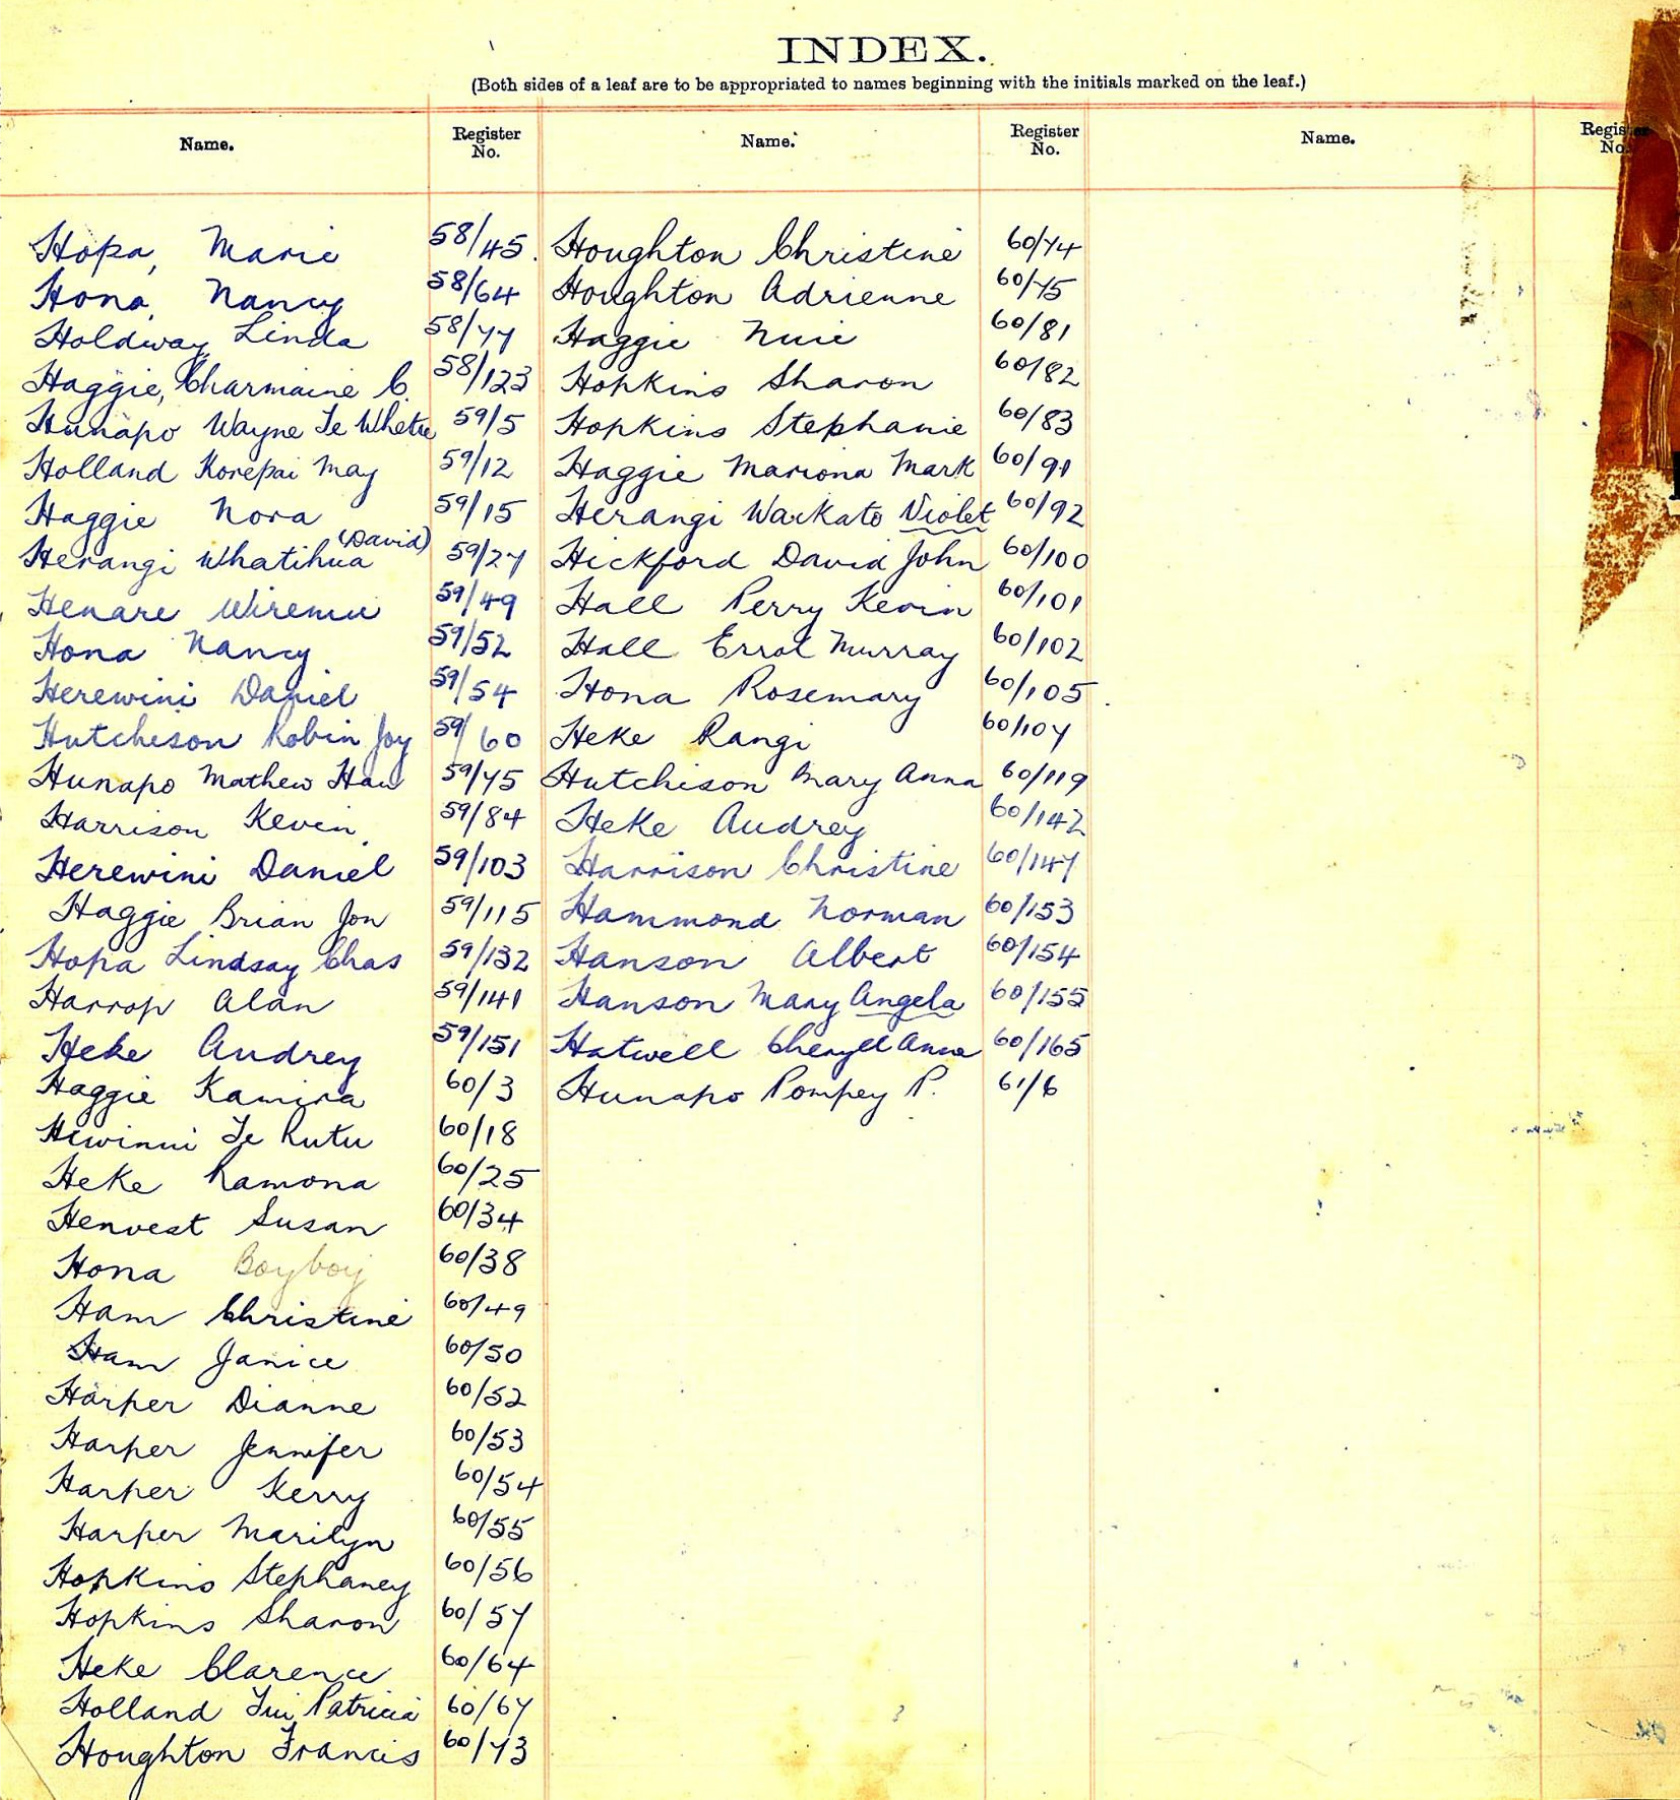 INDEX.
(Both sides of a leaf are to be appropriated to names beginning with the initials marked on the leaf.)
Name. Register No. Name. Register No. Name. Register No.
Hopa, Marie 58/45
Hona, Nancy 58/64
Holdway Linda 58/77
Haggie, Charmaine C. 58/123
Hunapo Wayne Te Whetu 59/5
Holland Korepai May 59/12
Haggie Nora 59/15
Herangi Whatihua (David) 59/27
Henare Wiremu 59/49
Hona Nancy 59/52
Herewini Daniel 59/54
Hutcheson Robin Joy 59/60
Hunapo Mathew Hau 59/75
Harrison Kevin 59/84
Herewini Daniel 59/103
Haggie Brian Jon 59/115
Hopa Lindsay Chas 59/132
Harrop Alan 59/141
Heke Audrey 59/151
Haggie Kamira 60/3
Hiwinui Te Rutu 60/18
Heke Ramona 60/25
Henvest Susan 60/34
Hona Boyboy 60/38
Ham Christine 60/49
Ham Janice 60/50
Harper Dianne 60/52
Harper Jennifer 60/53
Harper Kerry 60/54
Harper Marilyn 60/55
Hopkins Stephaney 60/56
Hopkins Sharon 60/57
Heke Clarence 60/64
Holland Tui Patricia 60/67
Houghton Francis 60/73
Houghton Christine 60/74
Houghton Adrienne 60/75
Haggie Nuie 60/81
Hopkins Sharon 60/82
Hopkins Stephanie 60/83
Haggie Mariona Mark 60/91
Herangi Waikato Violet 60/92
Hickford David John 60/100
Hall Perry Kevin 60/101
Hall Errol Murray 60/102
Hona Rosemary 60/105
Heke Rangi 60/107
Hutchison Mary Anna 60/119
Heke Audrey 60/142
Harrison Christine 60/147
Hammond Norman 60/153
Hanson Albert 60/154
Hanson Mary Angela 60/155
Hatwell Cheryll Anne 60/165
Hunapo Pompey P. 61/6